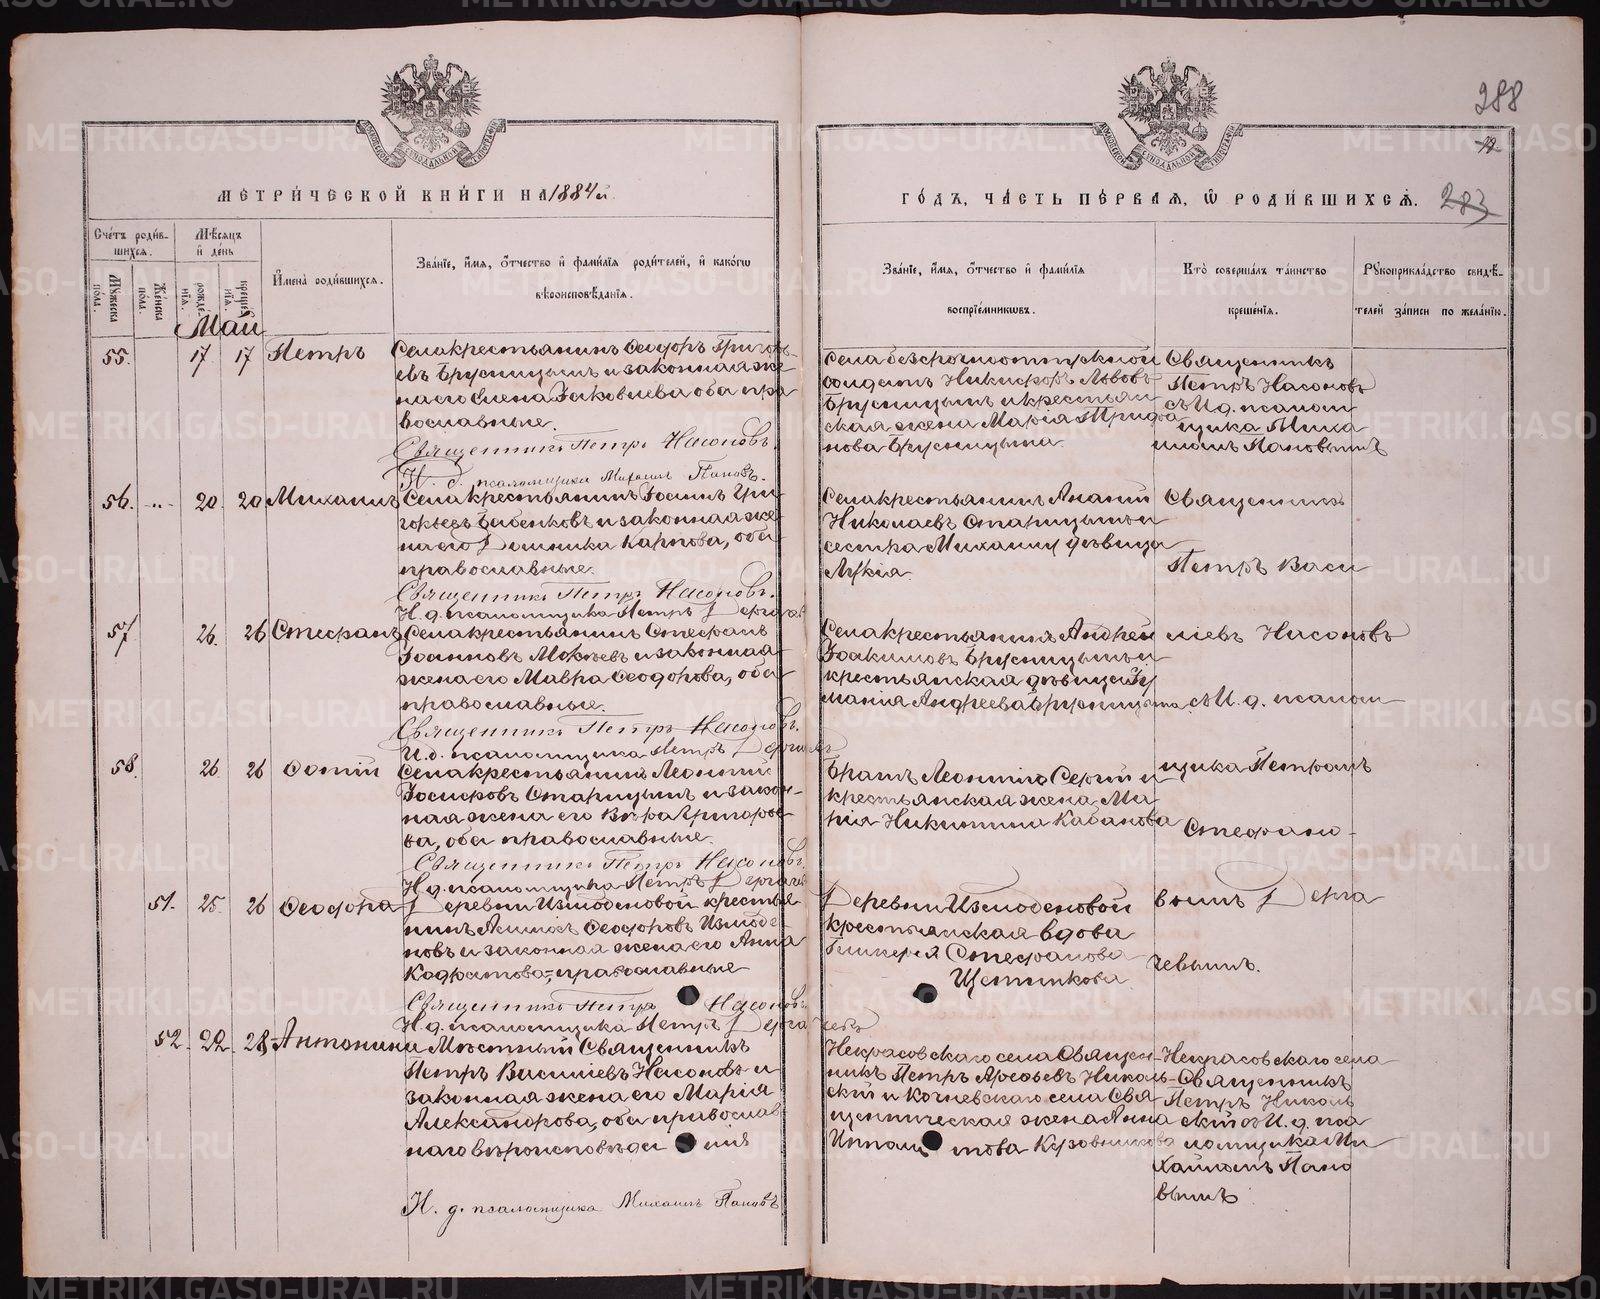 288
19
МЕТРИ́ЧЕСКОЙ КНИ́ГИ НА 1884й
ГО́ДЪ, ЧА́СТЬ ПЕ́РВАЯ, Ѿ РОДИ́ВШИХСЯ. 283
Сче́тъ роди́в-
шихся.
Мѣ́сяцъ
и̂ де́нь
Мꙋжеска по́ла.
Же́нска по́ла.
рожде́нїя.
креще́нїя.
И̂мена̀ роди́вшихся.
Зва́нїе, и̂́мя, о̂́тчество и̂ фами́лїя роди́телей, и̂ како́гѡ
вѣроисповѣ́данїя.
Зва́нїе, и̂́мя, о̂́тчество и̂ фами́лїя
воспрїе́мникѡвъ.
Кто̀ соверша́лъ та́инство
креще́нїя.
Рꙋкоприкла́дство свидѣ́-
телей за́писи по жела́нїю.
Май
55. 17 17 Петръ
Села крестьянинъ Ѳеодоръ Григорь-
евъ Брусницынъ и законная же-
на его Елена Іаковлева оба пра
вославные.
Священникъ Петръ Насоновъ.
И. д. псаломщика Михаилъ Пановъ.
Села безсрочноотпускной
солдатъ Никифоръ Львовъ
Брусницынъ и крестьян
ская жена Марія
нова Брусницына
Священникъ
Петръ Насоновъ
съ И.д. псалом
щика Миха
иломъ Пановымъ
56. -"- 20. 20 Михаилъ
Села крестьянинъ Іоаннъ Гри-
горьевъ Бабенковъ и законная же-
на его Домника Карпова, оба
православные.
Священникъ Петръ Насоновъ.
И. д. псаломщика Петръ Дергачевъ
Села крестьянинъ Ананій
Николаевъ Старицынъ и
сестра Михаилу дѣвица
Лукія.
Священникъ
Петръ Васи
57 26. 26 Стефанъ
Села крестьянинъ Стефанъ
Іоанновъ Мокѣевъ и законная
жена его Мавра Ѳеодорова, оба
православные.
Священникъ Петръ Насоновъ.
И.д. псаломщика Петръ Дергачевъ
Села крестьянинъ Андрей
Іоакимовъ Брусницынъ и
крестьянская дѣвица Іу
манія Андреева Брусницына
ліевъ Насоновъ
съ И. д. псалом
58. 26 26 Фотій
Села крестьянинъ Леонтій
Іосифовъ Старицынъ и закон-
ная жена его Вѣра Григорье
ва, оба православные.
Священникъ Петръ Насоновъ
И д. псаломщика Петръ Дергачевъ
Братъ Леонтія Сергій и
крестьянская жена Ма
рія Никитина Кабанова
щика Петромъ
Стефано-
51. 25. 26 Ѳеодора
Деревни Измоденовой крестья
нинъ Акимъ Ѳеодоровъ Измоде
новъ и законная жена его Анна
Кодратова, православные
Священникъ Петръ Насоновъ
И. д. псаломщика Петръ Дергачевъ
Деревни Измоденовой
крестьянская вдова
Гликерія Стефанова
Щетникова
вымъ Дерга
чевымъ.
52. 22. 28. Антонина
Мѣстный Священникъ
Петръ Василіевъ Насоновъ и
законная жена его Марія
Александрова, оба православ
наго вѣроисповѣданія
И. д. псаломщика Михаилъ Пановъ
Некрасовскаго села Священ-
никъ Петръ Арсеьевъ Николь-
скій и Кочневскаго села Свя
щенническая жена Анна
Ипполитова Кузовникова
Некрасовскаго села
Священникъ
Петръ Николь
скій съ И. д. пса
ломщика Ми
хаиломъ Пано
вымъ